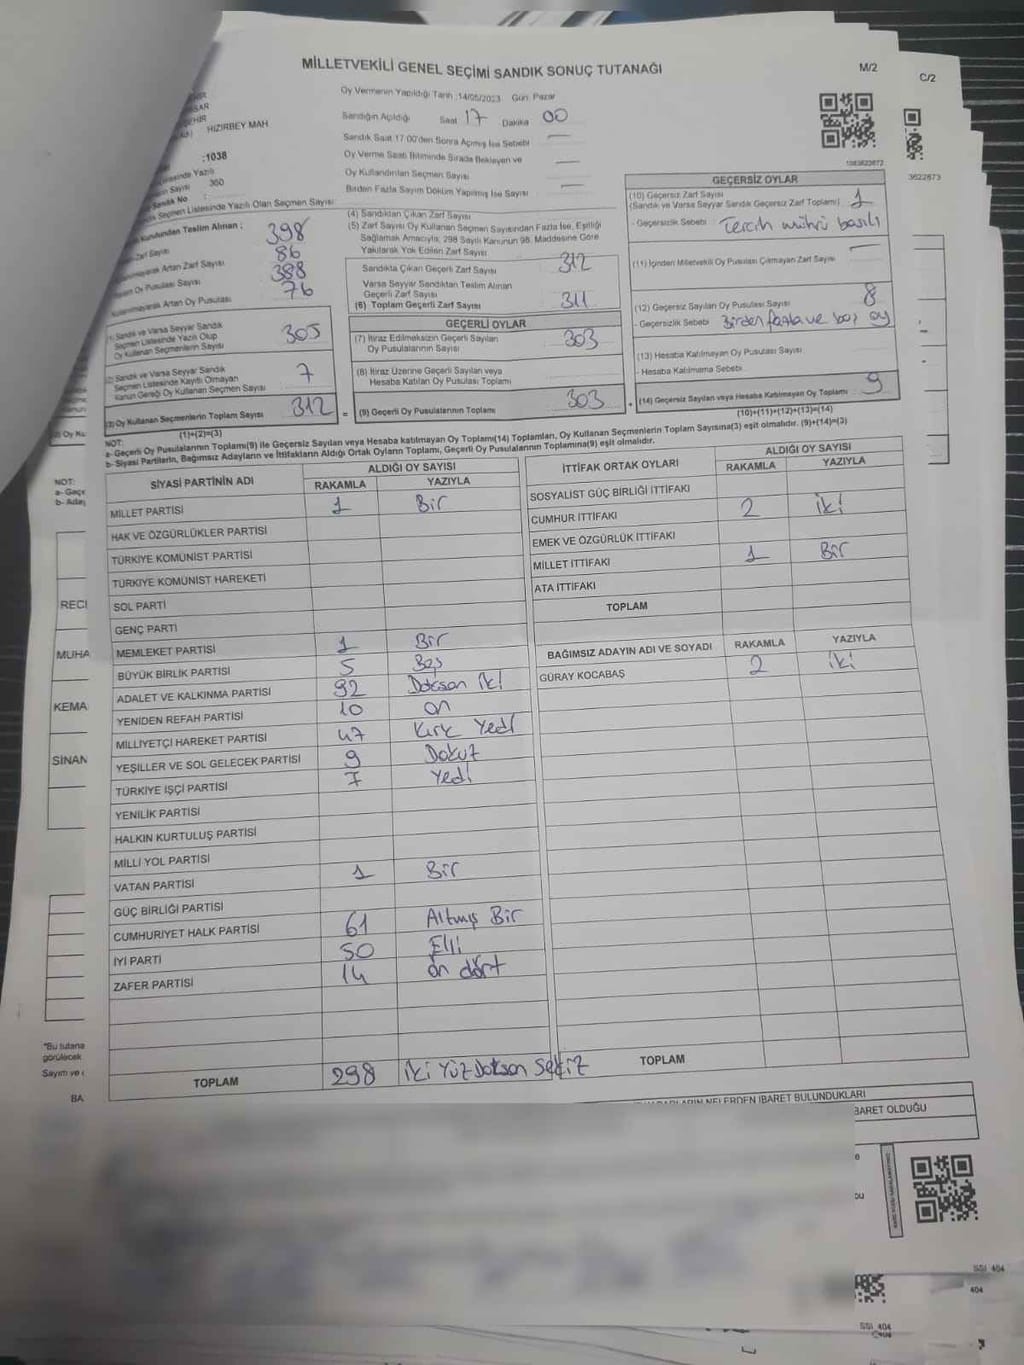 MİLLETVEKİLİ GENEL SEÇİMİ SANDIK SONUÇ TUTANAĞI
M/2
C/2
Oy Vermenin Yapıldığı Tarih :14/05/2023 Gün: Pazar
HIZIRBEY MAH
Sandığın Açıldığı Saat 17 Dakika 00
Sandık Saat 17:00'den Sonra Açılmış İse Sebebi
:1038
Oy Verme Saati Bitiminde Sırada Bekleyen ve
Oy Kullandırılan Seçmen Sayısı
360
Birden Fazla Sayım Döküm Yapılmış İse Sayısı
3622673
Seçmen Listesinde Yazılı Olan Seçmen Sayısı
Kurulundan Teslim Alınan :
398
86
Artan Zarf Sayısı
388
Oy Pusulası Sayısı
76
Artan Oy Pusulası
(1) Sandık ve Varsa Seyyar Sandık
Seçmen Listesinde Yazılı Olup
Oy Kullanan Seçmenlerin Sayısı
305
(2) Sandık ve Varsa Seyyar Sandık
Seçmen Listesinde Kayıtlı Olmayan
Kanun Gereği Oy Kullanan Seçmen Sayısı
7
(3) Oy Kullanan Seçmenlerin Toplam Sayısı 312
(1)+(2)=(3)
(4) Sandıktan Çıkan Zarf Sayısı
(5) Zarf Sayısı Oy Kullanan Seçmen Sayısından Fazla İse, Eşitliği
Sağlamak Amacıyla; 298 Sayılı Kanunun 98. Maddesine Göre
Yakılarak Yok Edilen Zarf Sayısı
Sandıkta Çıkan Geçerli Zarf Sayısı 312
Varsa Seyyar Sandıktan Teslim Alınan
Geçerli Zarf Sayısı
(6) Toplam Geçerli Zarf Sayısı 311
GEÇERLİ OYLAR
(7) İtiraz Edilmeksizin Geçerli Sayılan
Oy Pusulalarının Sayısı
303
(8) İtiraz Üzerine Geçerli Sayılan veya
Hesaba Katılan Oy Pusulası Toplamı
= (9) Geçerli Oy Pusulalarının Toplamı 303 +
GEÇERSİZ OYLAR
(10) Geçersiz Zarf Sayısı
(Sandık ve Varsa Seyyar Sandık Geçersiz Zarf Toplamı) 1
- Geçersizlik Sebebi : Tercih mührü basılı
(11) İçinden Milletvekili Oy Pusulası Çıkmayan Zarf Sayısı
(12) Geçersiz Sayılan Oy Pusulası Sayısı 8
- Geçersizlik Sebebi Birden fazla ve boş oy
(13) Hesaba Katılmayan Oy Pusulası Sayısı
- Hesaba Katılmama Sebebi
(14) Geçersiz Sayılan veya Hesaba Katılmayan Oy Toplamı 9
(10)+(11)+(12)+(13)=(14)
NOT:
a- Geçerli Oy Pusulalarının Toplamı(9) ile Geçersiz Sayılan veya Hesaba katılmayan Oy Toplamı(14) Toplamları, Oy Kullanan Seçmenlerin Toplam Sayısına(3) eşit olmalıdır. (9)+(14)=(3)
b- Siyasi Partilerin, Bağımsız Adayların ve İttifakların Aldığı Ortak Oyların Toplamı, Geçerli Oy Pusulalarının Toplamına(9) eşit olmalıdır.
SİYASİ PARTİNİN ADI
ALDIĞI OY SAYISI
RAKAMLA YAZIYLA
MİLLET PARTİSİ 1 Bir
HAK VE ÖZGÜRLÜKLER PARTİSİ
TÜRKİYE KOMÜNİST PARTİSİ
TÜRKİYE KOMÜNİST HAREKETİ
SOL PARTİ
GENÇ PARTİ
MEMLEKET PARTİSİ 1 Bir
BÜYÜK BİRLİK PARTİSİ 5 Beş
ADALET VE KALKINMA PARTİSİ 92 Doksan iki
YENİDEN REFAH PARTİSİ 10 on
MİLLİYETÇİ HAREKET PARTİSİ 47 Kırk Yedi
YEŞİLLER VE SOL GELECEK PARTİSİ 9 Dokuz
TÜRKİYE İŞÇİ PARTİSİ 7 Yedi
YENİLİK PARTİSİ
HALKIN KURTULUŞ PARTİSİ
MİLLİ YOL PARTİSİ
VATAN PARTİSİ 1 Bir
GÜÇ BİRLİĞİ PARTİSİ
CUMHURİYET HALK PARTİSİ 61 Altmış Bir
İYİ PARTİ 50 Elli
ZAFER PARTİSİ 14 on dört
TOPLAM 298 iki Yüz Doksan Sekiz
İTTİFAK ORTAK OYLARI
ALDIĞI OY SAYISI
RAKAMLA YAZIYLA
SOSYALİST GÜÇ BİRLİĞİ İTTİFAKI
CUMHUR İTTİFAKI 2 iki
EMEK VE ÖZGÜRLÜK İTTİFAKI
MİLLET İTTİFAKI 1 Bir
ATA İTTİFAKI
TOPLAM
BAĞIMSIZ ADAYIN ADI VE SOYADI RAKAMLA YAZIYLA
GÜRAY KOCABAŞ 2 iki
TOPLAM
NOT:
a- Geçe
RECE
MUHA
KEMA
SİNAN
*Bu tutana
görülecek
Sayım ve
BA
NELERDEN İBARET BULUNDUKLARI
BARET OLDUĞU
SSI 404
404
SSI 404